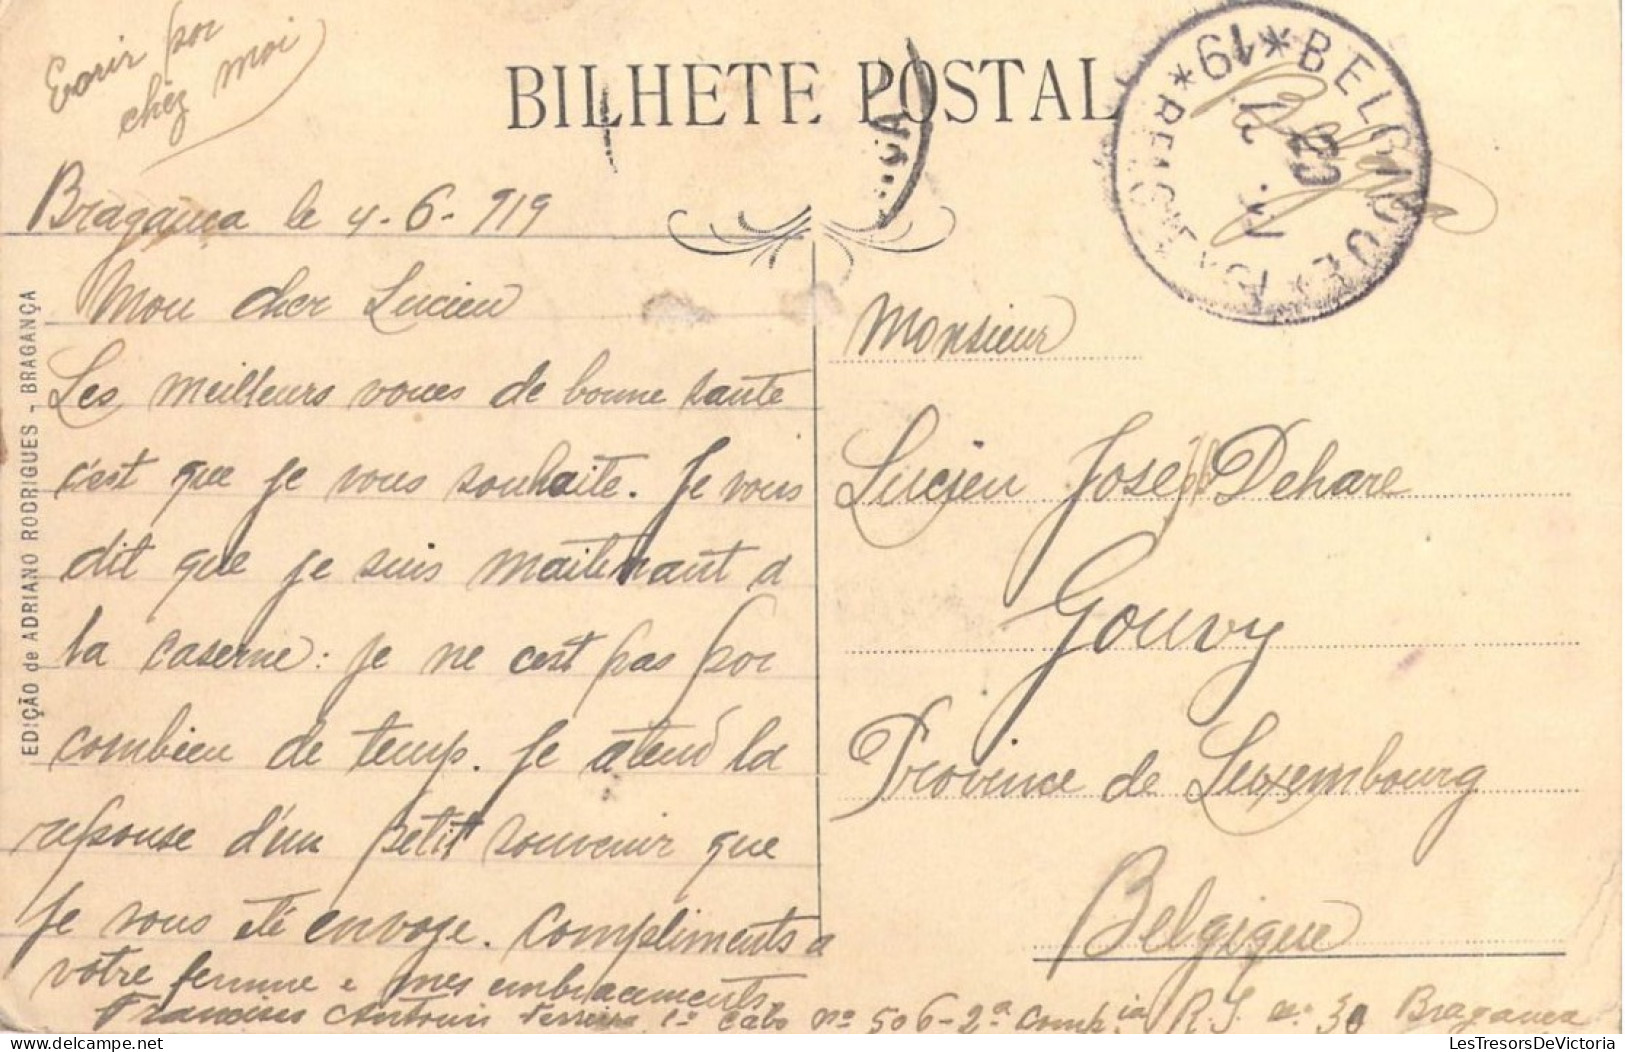 Ecrir por
chez moi
BILHETE POSTAL
*19* BELGIQUE * BELGIË
Belgica
Bragança le 4-6-919
Mon cher Lucien
Les meilleurs voues de bonne sante
c'est que je vous souhaite. Je vous
dit que je suis maitenant a
la caserne: je ne c'est pas por
combien de temp. Je atend la
reponse d'un petit souvenir que
Je vous été envoye. Compliments a
vôtre femme e mes embracements
Antonis Ferreira 1º Cabo nº 506-2ª Compia R.I. nº 30 Bragança
EDIÇÃO de ADRIANO RODRIGUES - BRAGANÇA
Monsieur
Lucien Joseph Dehare
Gouvy
Province de Luxembourg
Belgique
LesTresorsDeVictoria
delcampe.net